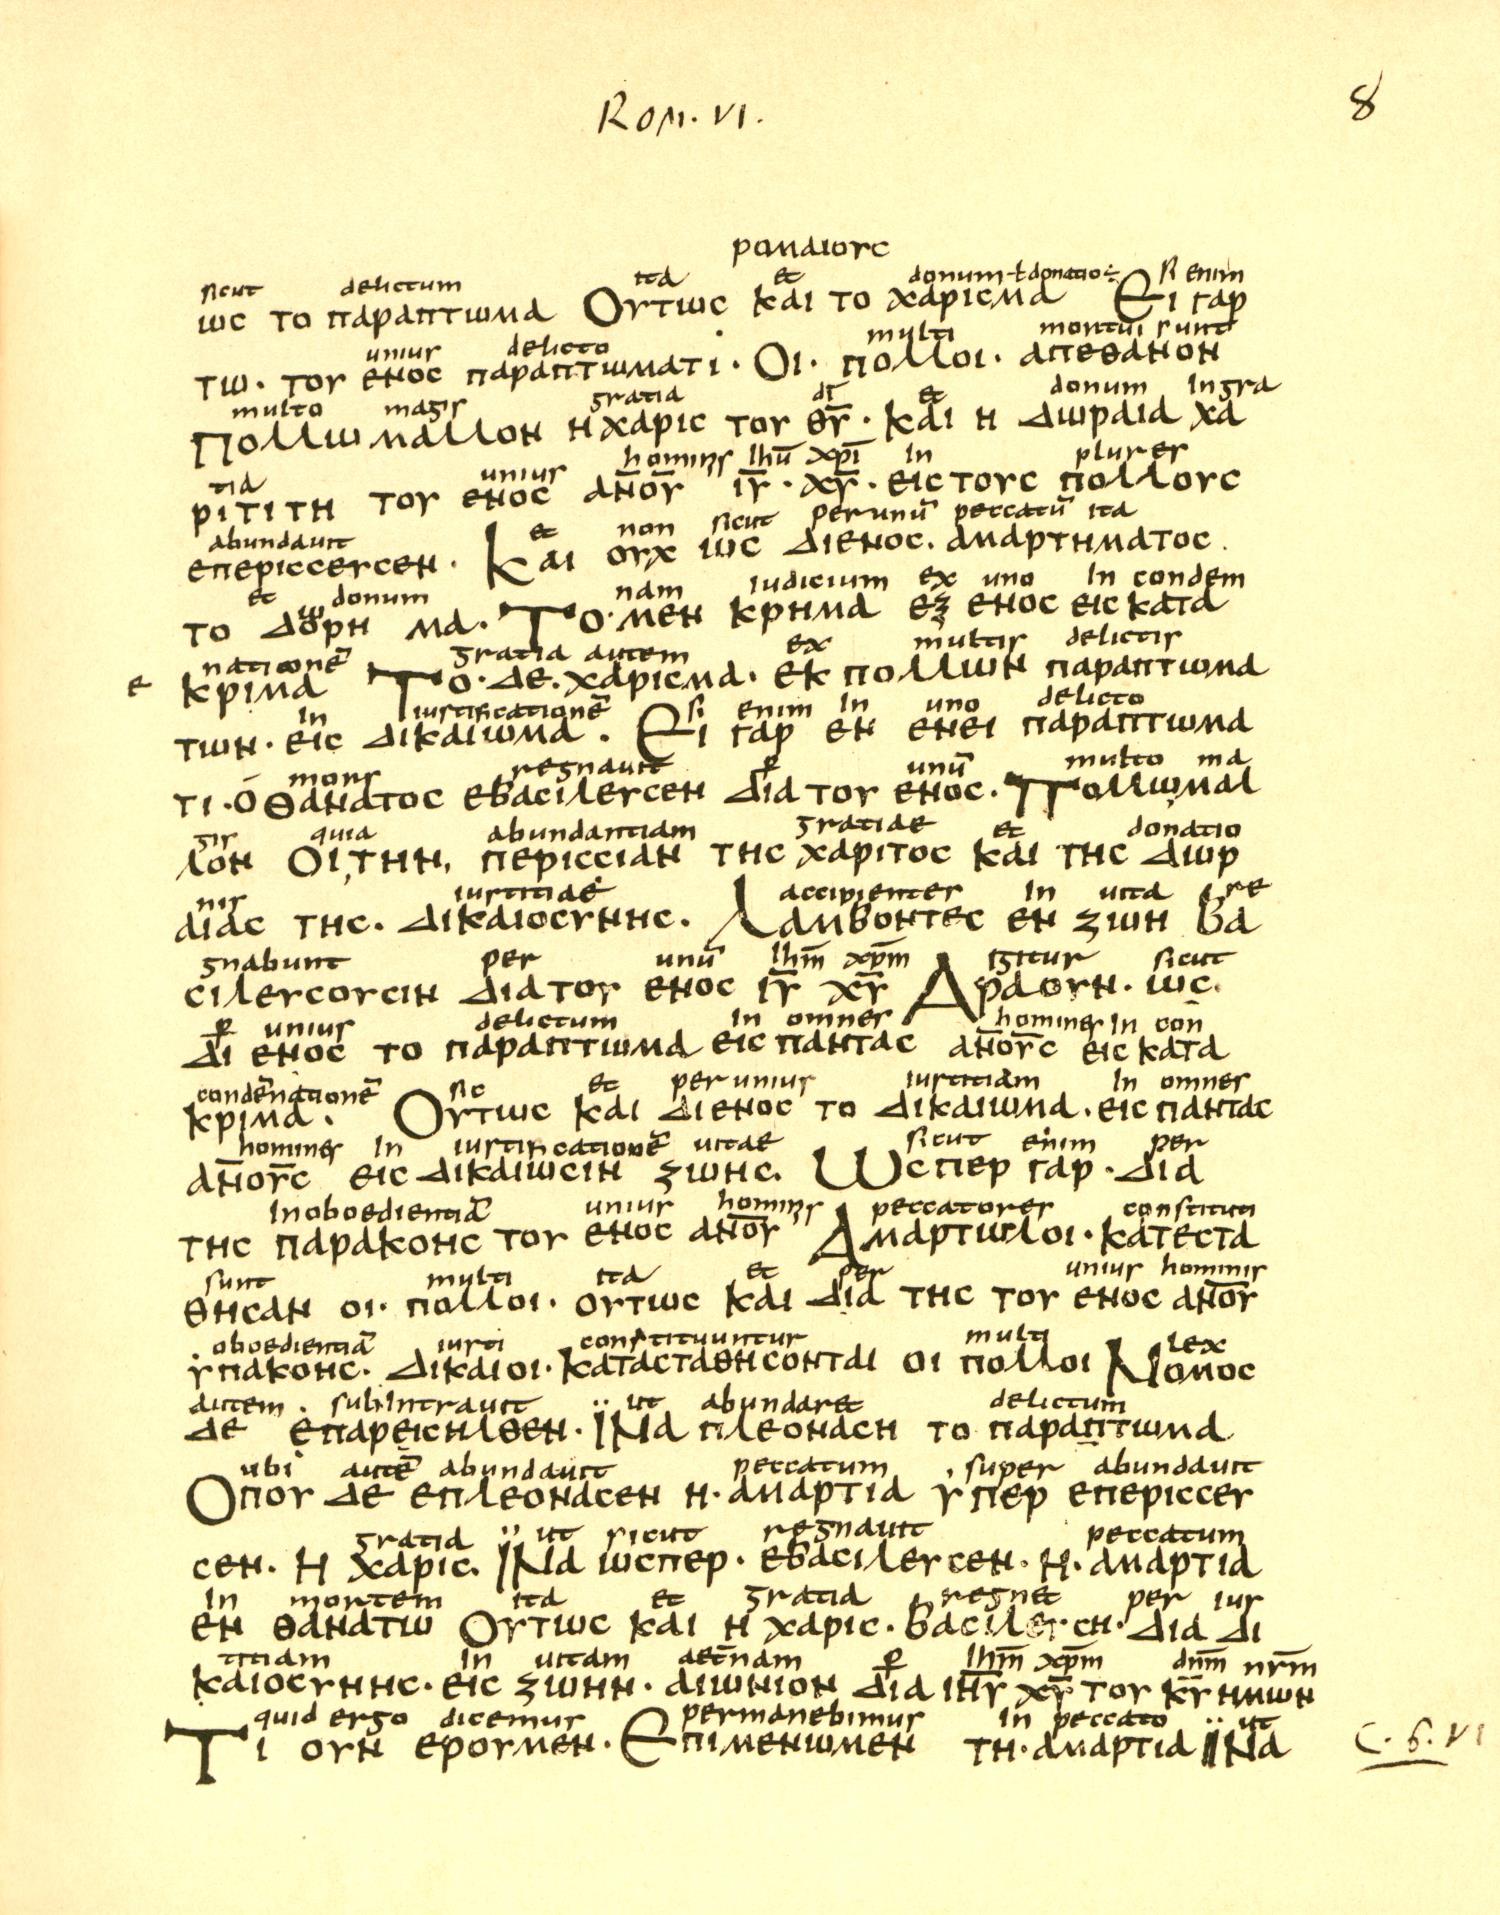 Rom. VI.
8
ρωμαιους
sicut delictum ita et donum ł donatio Si enim
ως το παραπτωμα Ουτως και το χαρισμα Ει γαρ
unius delicto multi mortui sunt
τω · του ενος παραπτωματι · Οι · πολλοι · απεθανον
multo magis gratia dī et donum In gra
Πολλω μαλλον η χαρις του θ̅υ̅ · και η δωραια χα
tia unius hominis Ihū xpī In plures
ριτι τη του ενος α̅ν̅ο̅υ̅ ι̅υ̅ · χ̅υ̅ · εις τους πολλους
abundauit et non sicut per unū peccatū ita
επεριςςευσεν · Και ουχ ως διενος · αμαρτηματος ·
et donum nam iudicium ex uno In condem
το δωρη μα · Το · μεν κρημα εξ ενος εις κατα
nationē gratia autem ex multis delictis
ε κριμα Το · δε · χαρισμα · εκ πολλων παραπτωμα
In iustificationē si enim In uno delicto
των · εις δικαιωμα · Ει γαρ εν ενει παραπτωμα
mors regnauit p unū multo ma
τι · ο θανατος εβασιλευσεν δια του ενος · Πολλω μαλ
gis quia abundantiam gratiae et donatio
λον Οι την, περισσιαν της χαριτος και της δωρ
nis iustitiae accipientes In uita re
αιας της · δικαιοσυνης · Λαμβοντες εν ζωη βα
gnabunt per unū Ihm̄ xpm̄ Igitur sicut
σιλευσουσιν δια του ενος ι̅υ̅ χ̅υ̅ Αρα ουν · ως ·
p unius delictum In omnes homines In con
δι ενος το παραπτωμα εις παντας α̅ν̅ο̅υ̅ς εις κατα
condēnationē sic et per unius iustitiam In omnes
κριμα · Ουτως και διενος το δικαιωμα · εις παντας
homines In iustificationē uitae sicut enim per
α̅ν̅ο̅υ̅ς εις δικαιωσιν ζωης · Ωσπερ γαρ · δια
Inoboedientiā unius hominis peccatores constituti
της παρακοης του ενος α̅ν̅ο̅υ̅ Αμαρτωλοι · κατεστα
sunt multi ita et per unius hominis
θησαν οι · πολλοι · ουτως και δια της του ενος α̅ν̅ο̅υ̅
oboedientiā iusti constituuntur multi lex
υπακοης · δικαιοι · κατασταθησονται οι πολλοι Νομος
autem · subIntrauit ut abundaret delictum
δε επαρεισηλθεν · ϊΝα πλεοναση το παραπτωμα
ubi autē abundauit peccatum super abundauit
Οπου δε επλεονασεν η · αμαρτια υπερ επερισσευ
gratia ut sicut regnauit peccatum
σεν · η χαρις · ϊΝα ωσπερ · εβασιλευσεν · η · αμαρτια
In mortem ita et gratia regnet per ius
εν θανατω Ουτως και η χαρις · βασιλευση · δια δι
titiam In uitam aet̄nam p Ihm̄ xpm̄ dnm̄ nrm̄
καιοσυνης · εις ζωην · αιωνιον δια ι̅η̅υ̅ χ̅υ̅ του κ̅υ̅ ημων
quid ergo dicemus permanebimus In peccato ut
Τι ουν ερουμεν · Επιμενωμεν τη · αμαρτια ϊΝα
C. 6. VI